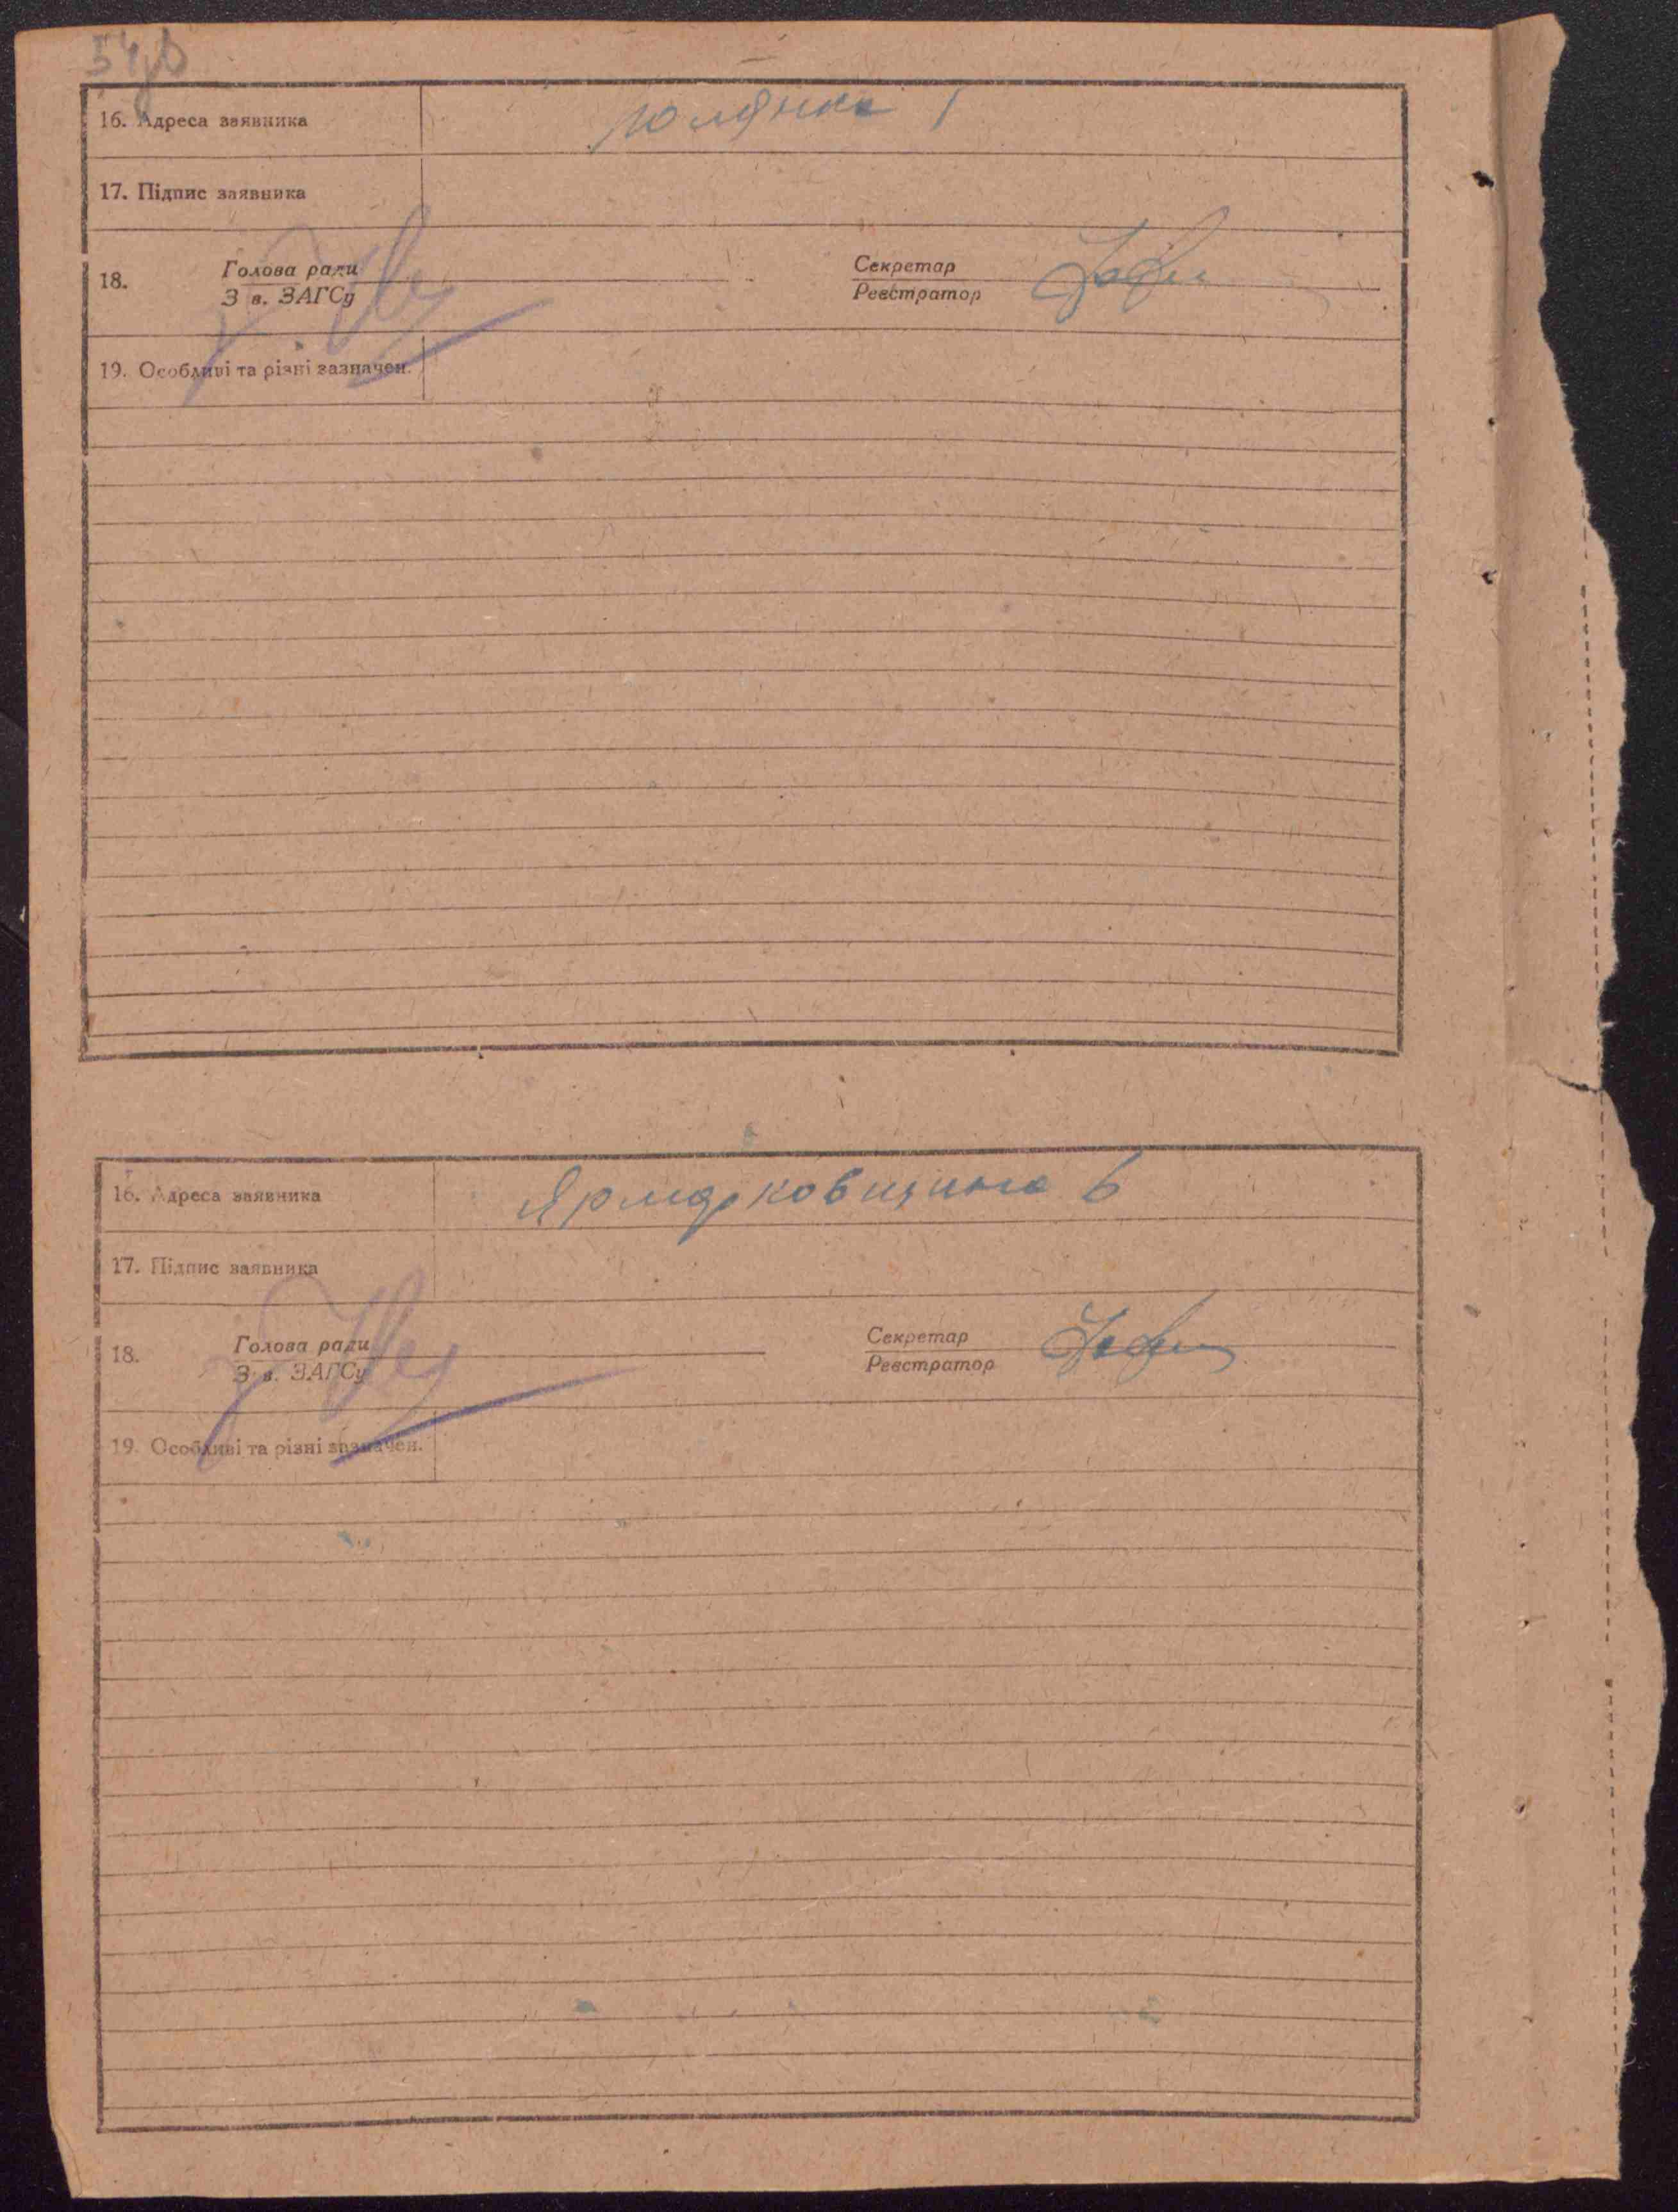 54
16. Адреса заявника
17. Підпис заявника
18. Голова ради Секретар
З в. ЗАГСу Реєстратор
19. Особливі та різні зазначен.
16. Адреса заявника Ярмарковищина 6
17. Підпис заявника
18. Голова ради Секретар
З в. ЗАГСу Реєстратор
19. Особливі та різні зазначен.